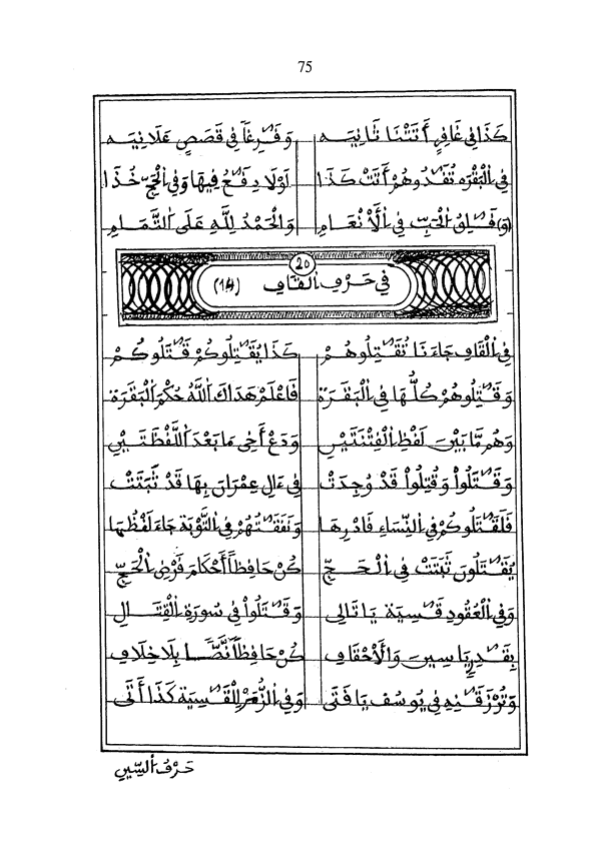 75
كَذَا فِي غَافِرٍ أَتَتْنَا ثَانِيَه وَفَٰرِغاً فِي قَصَصٍ عَلَانِيَه
فِي الْبَقَرَه تُفَٰدُوهُمْ أَتَتْ كَذَا لَوْلَا دِفَٰعُ فِيهَا وَفِي الْحَجِّ خُذَا
(وَ) فَٰلِقُ الْحَبِّ فِي الْأَنْعَامِ وَالْحَمْدُ لِلَّهِ عَلَى التَّمَامِ
20
فِي حَرْفِ الْقَافِ (14)
فِي الْقَافِ جَاءَنَا تُقَٰتِلُوهُمْ كَذَا يُقَٰتِلُوكُمْ قَٰتَلُوكُمْ
وَقَٰتِلُوهُمْ كُلُّهَا فِي الْبَقَرَةْ فَاعْلَمْ هَدَاكَ اللَّهُ حُكْمَ الْبَقَرَةْ
وَهُم مَّا بَيْنَ لَفْظِ الْفِتْنَتَيْنِ وَدَعْ أَخِي مَا بَعْدَ اللَّفْظَتَيْنِ
وَقَٰتَلُواْ وَقُتِلُواْ قَدْ وُجِدَتْ فِي ءَالِ عِمْرَانَ بِهَا قَدْ ثَبَتَتْ
فَلَقَٰتَلُوكُمْ فِي النِّسَاءِ فَادْرِهَا وَنَفَقَٰتُهُمْ فِي التَّوْبَةِ جَاءَ لَفْظُهَا
يُقَٰتَلُونَ ثَبَتَتْ فِي الْحَجِّ كُنْ حَافِظاً أَحْكَامَ فَرْضِ الْحَجِّ
وَفِي الْعُقُودِ قَٰسِيَةً يَا تَالِي وَقَٰتَلُواْ فِي سُورَةِ الْقِتَالِ
بِقَٰدِرٍ يَاسِينَ وَالْأَحْقَافِ كُنْ حَافِظاً نَصًّا بِلَا خِلَافِ
وَتُرْزَقَٰنِهِ فِي يُوسُفَ يَا فَتَى وَفِي الزُّمَرْ لِلْقَٰسِيَةِ كَذَا أَتَى
حَرْفُ السِّينِ